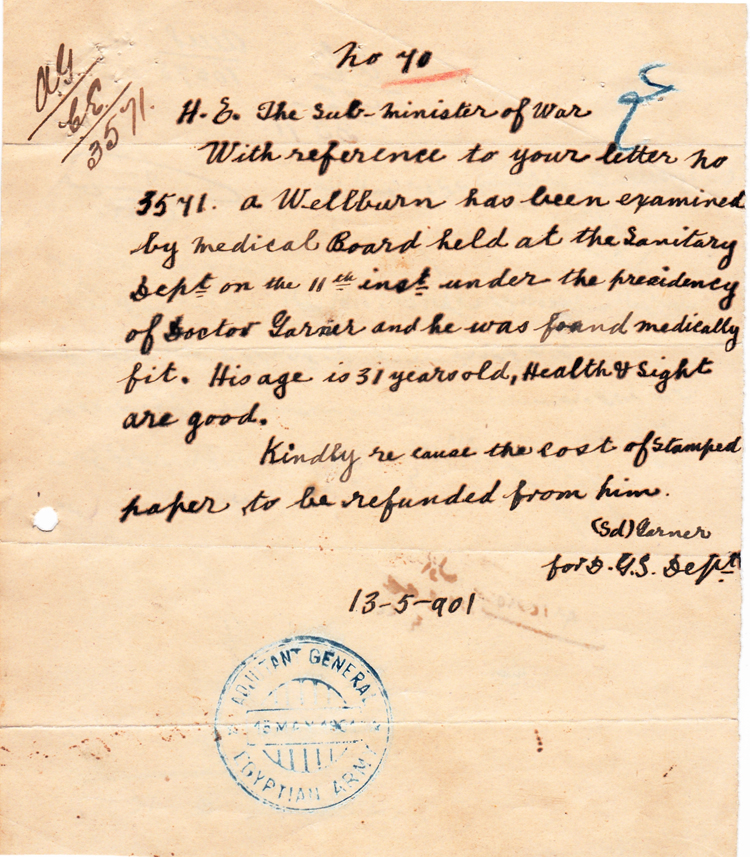 No 70
A.G.
C.E.
3571.
H.E. The Sub-Minister of War
With reference to your letter no
3571. a Wellburn has been examined
by medical Board held at the Sanitary
Dept on the 11th inst under the presidency
of Doctor Garner and he was found medically
fit. His age is 31 years old, Health & Sight
are good.
Kindly re cause the cost of stamped
paper to be refunded from him.
(Sd) Garner
for D.G.S. Dept
13-5-901
ADJUTANT GENERAL
MAY
EGYPTIAN ARMY